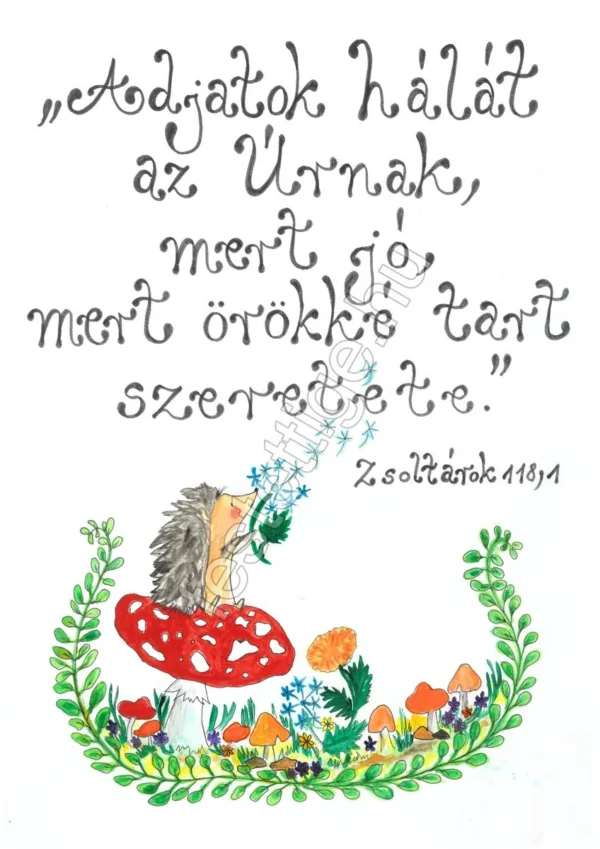 „Adjatok hálát
az Úrnak,
mert jó,
mert örökké tart
szeretete."
Zsoltárok 118,1